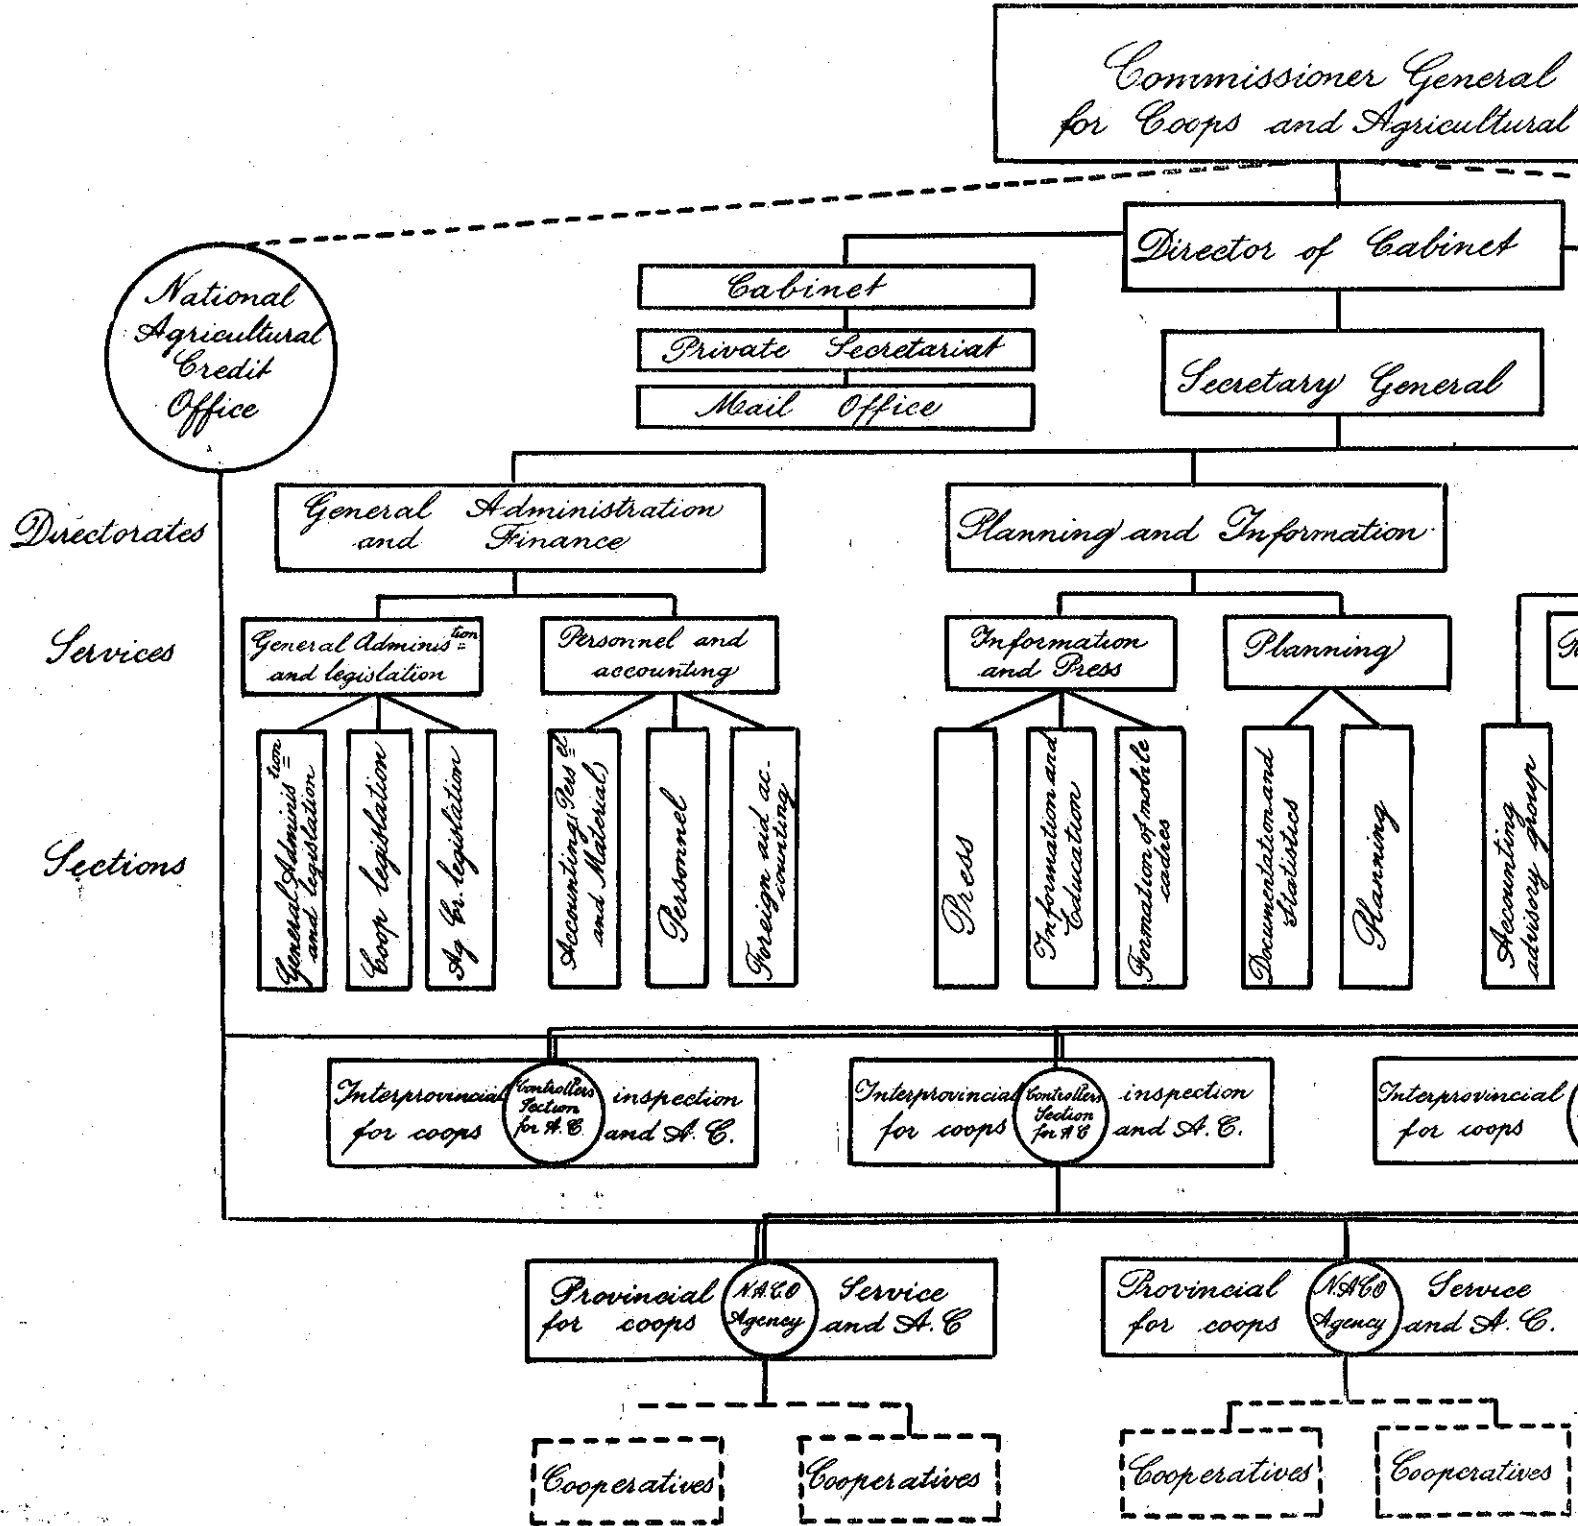 Commissioner General
for Coops and Agricultural
Director of Cabinet
Cabinet
Private Secretariat
Mail Office
Secretary General
National
Agricultural
Credit
Office
Directorates
General Administration
and Finance
Planning and Information
Services
General Administion
and legislation
Personnel and
accounting
Information
and Press
Planning
Sections
General Administion
and legislation
Coop legislation
Ag Cr. legislation
Accounting (Persel
and Material)
Personnel
Foreign aid ac-
counting
Press
Information and
Education
Formation of mobile
cadres
Documentation and
Statistics
Planning
Accounting
advisory group
Interprovincial inspection
for coops and A.C.
Controllers
Section
for A.C.
Interprovincial inspection
for coops and A.C.
Controllers
Section
for A.C
Interprovincial
for coops
Provincial Service
for coops and A.C
N.A.C.O
Agency
Provincial Service
for coops and A.C.
N.A.C.O
Agency
Cooperatives
Cooperatives
Cooperatives
Cooperatives